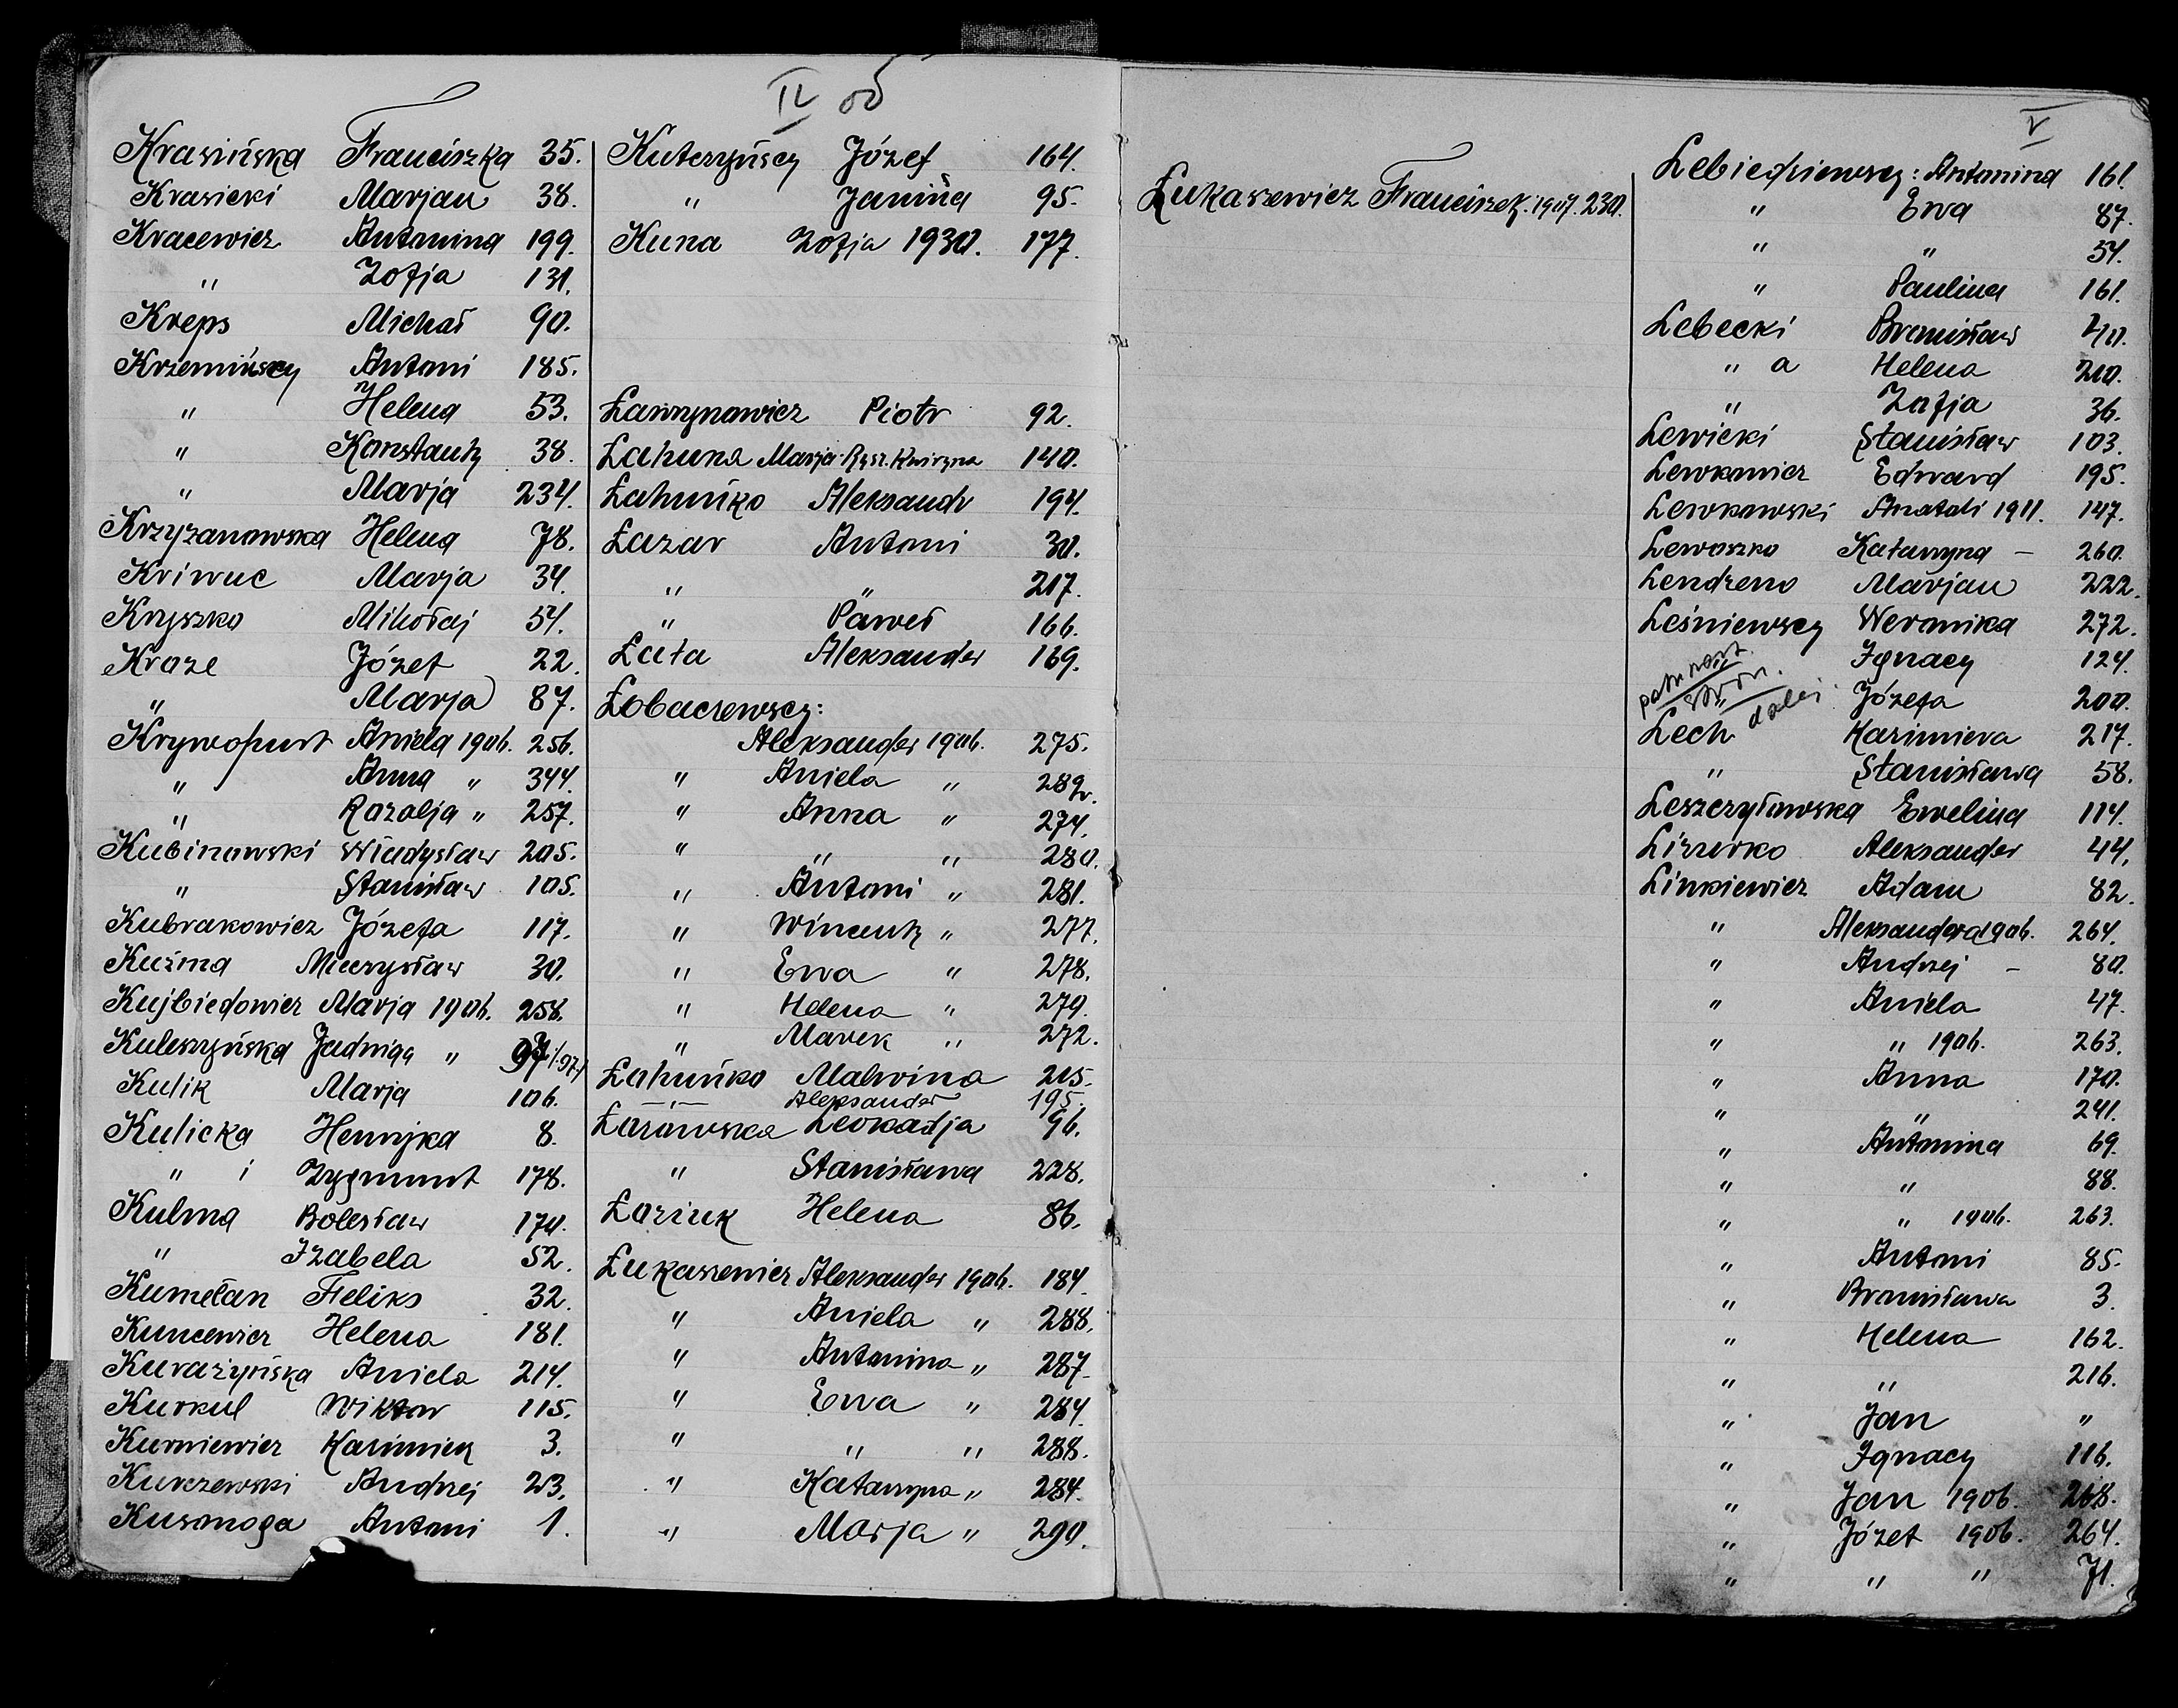 IV об
Krasińska Franciszka 35.
Krasicki Marjan 38.
Kracewicz Antonina 199.
" Zofja 131.
Kreps Michał 90.
Krzemińscy Antoni 185.
" Helena 53.
" Konstanty 38.
" Marja 234.
Krzyżanowska Helena 78.
Kriwuc Marja 34.
Kryszko Mikołaj 54.
Kroze Józef 22.
" Marja 87.
Krywopust Aniela 1906. 256.
" Anna " 344.
" Rozalja " 257.
Kubinowski Władysław 205.
" Stanisław 105.
Kubrakowicz Józefa 117.
Kuźma Mieczysław 30.
Kujbiedowicz Marja 1906. 258.
Kuleszyńska Jadwiga " 97
Kulik Marja 106.
Kulicka Henryka 8.
" i Zygmunt 178.
Kulma Bolesław 170.
" Izabela 52.
Kumelan Feliks 32.
Kuncewicz Helena 181.
Kurażyńska Aniela 214.
Kurkul Wiktor 115.
Kurniewicz Kazimierz 3.
Kurczewski Andrzej 23.
Kusonoga Antoni 1.
Kutczyńscy Józef 164.
" Janina 95.
Kuna Zofja 1930. 177.
Ławrynowicz Piotr 92.
Łahuna Marja 140.
Łahuńko Aleksandr 194.
Łazar Antoni 30.
" " 217.
" Paweł 166.
Łata Aleksander 169.
Łobaczewscy:
Aleksander 1906. 275.
" Aniela " 289v.
" Anna " 274.
" " " 280.
" Antoni " 281.
" Wincenty " 277.
" Ewa " 278.
" Helena " 279.
" Marek " 272.
Łahuńko Malwina 215.
— " — Aleksander 195.
Łozowska Leokadja 96.
" Stanisława 228.
Łoziuk Helena 86.
Łukaszewicz Aleksander 1906. 184.
" Aniela " 288.
" Antonina " 287.
" Ewa " 284.
" " " 288.
" Katarzyna " 284.
" Marja " 290.
V
Łukaszewicz Franciszek. 1907. 230.
Lebiedziewscy: Antonina 161.
" Ewa 87.
" " 54.
" Paulina 161.
Lebecki Bronisław 40.
" a Helena 210.
" Zofja 36.
Lewicki Stanisław 103.
Lewkowicz Edward 195.
Lewkowski Anatoli 1911. 147.
Lewoszko Katarzyna — 260.
Lendzeno Marjan 222.
Leśniewscy Weronika 272.
" Ignacy 124.
" Józefa 200.
dalej
Lech Kazimiera 217.
" Stanisława 58.
Leszczyławska Ewelina 114.
Lizurko Aleksander 44.
Linkiewicz Adam 82.
" Aleksandra 1906. 264.
" Andrzej — 80.
" Aniela 47.
" " 1906. 263.
" Anna 170.
" " 241.
" Antonina 69.
" " 88.
" " 1906. 263.
" Antoni 85.
" Bronisława 3.
" Helena 162.
" " 216.
" Jan "
" Ignacy 116.
" Jan 1906. 268.
" Józef 1906. 264.
" " " 71.